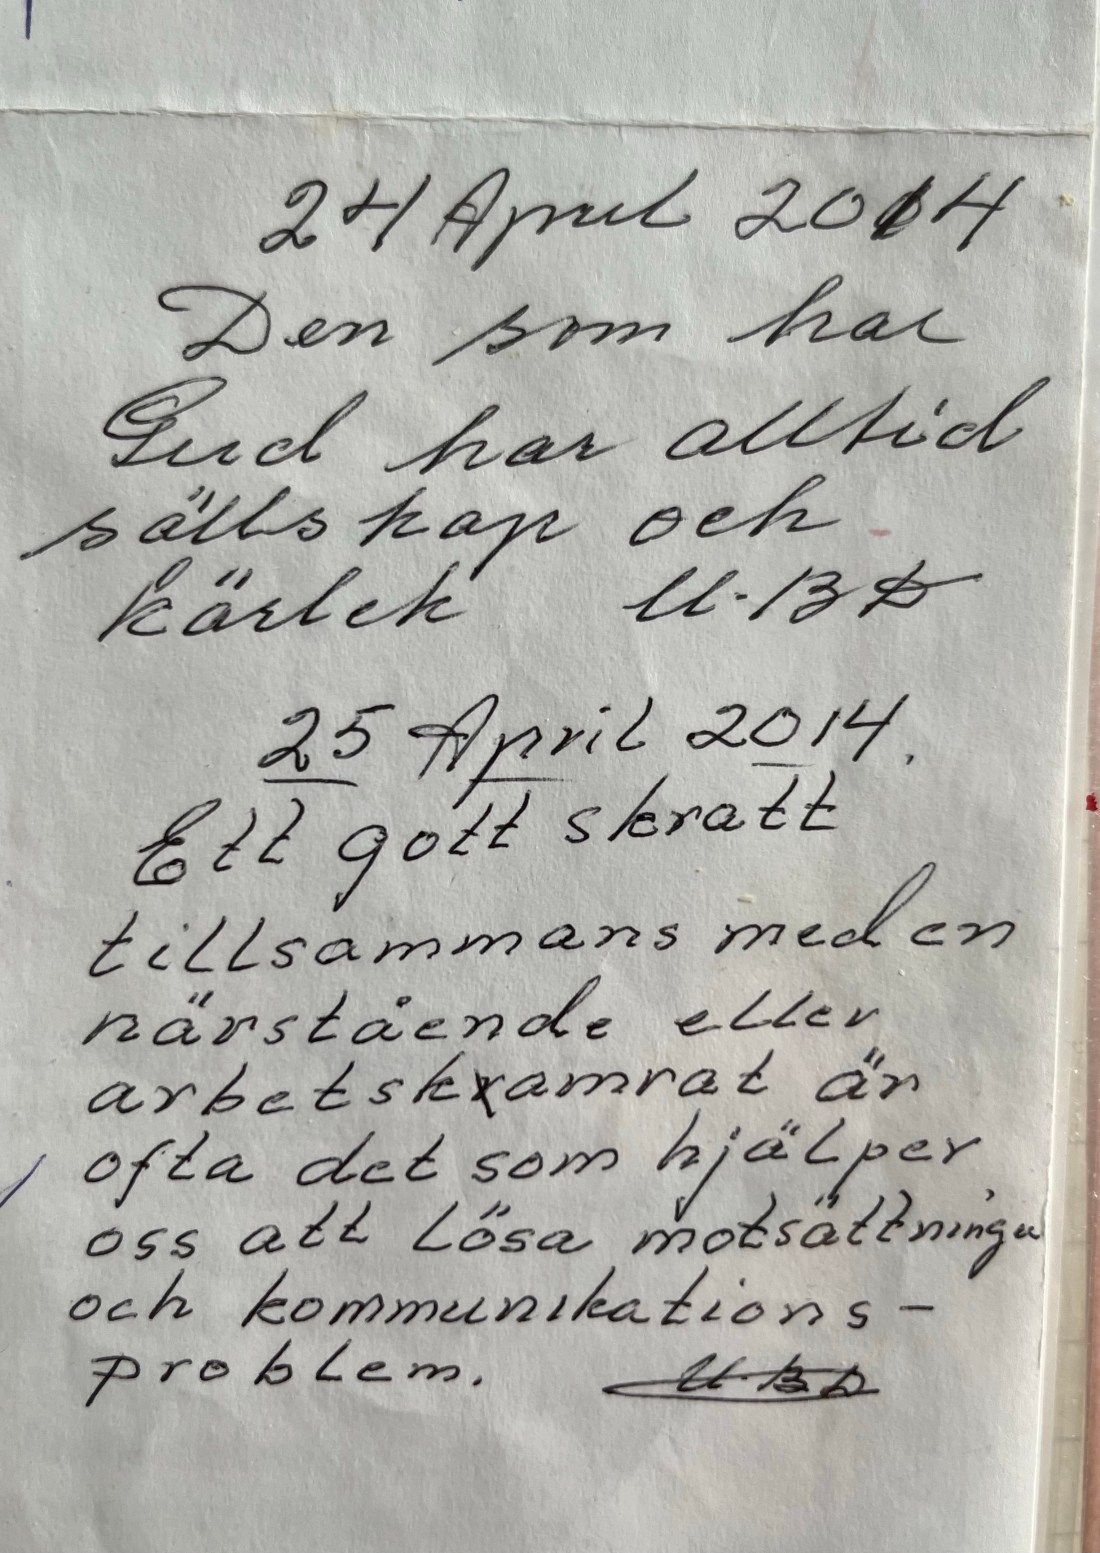 24 April 2014
Den som har
Gud har alltid
sällskap och
kärlek U.BD
25 April 2014.
Ett gott skratt
tillsammans med en
närstående eller
arbetskamrat är
ofta det som hjälper
oss att lösa motsättningar
och kommunikations-
problem. U.BD